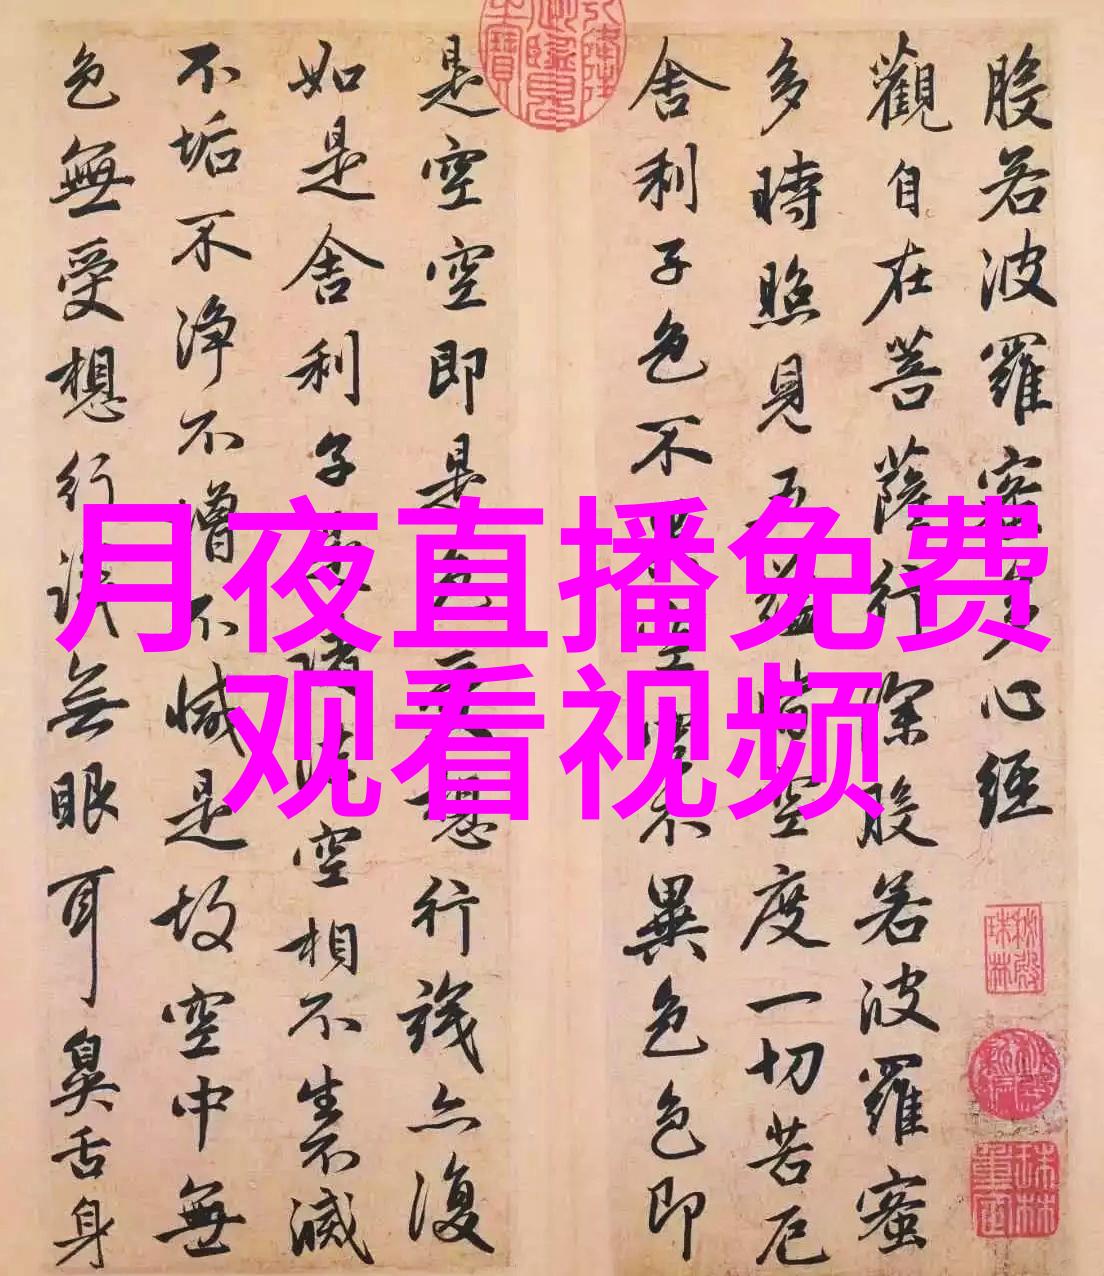 月夜直播免费
观看视频
般若波羅蜜多心經
觀自在菩薩行深般若波羅蜜
多時照見五蘊皆空度一切苦厄
舍利子色不異空空不異色色即
是空空即是色受想行識亦復
如是舍利子是諸法空相不生不滅
不垢不净不增不減是故空中無
色無受想行識無眼耳鼻舌身
秘殿
珠林